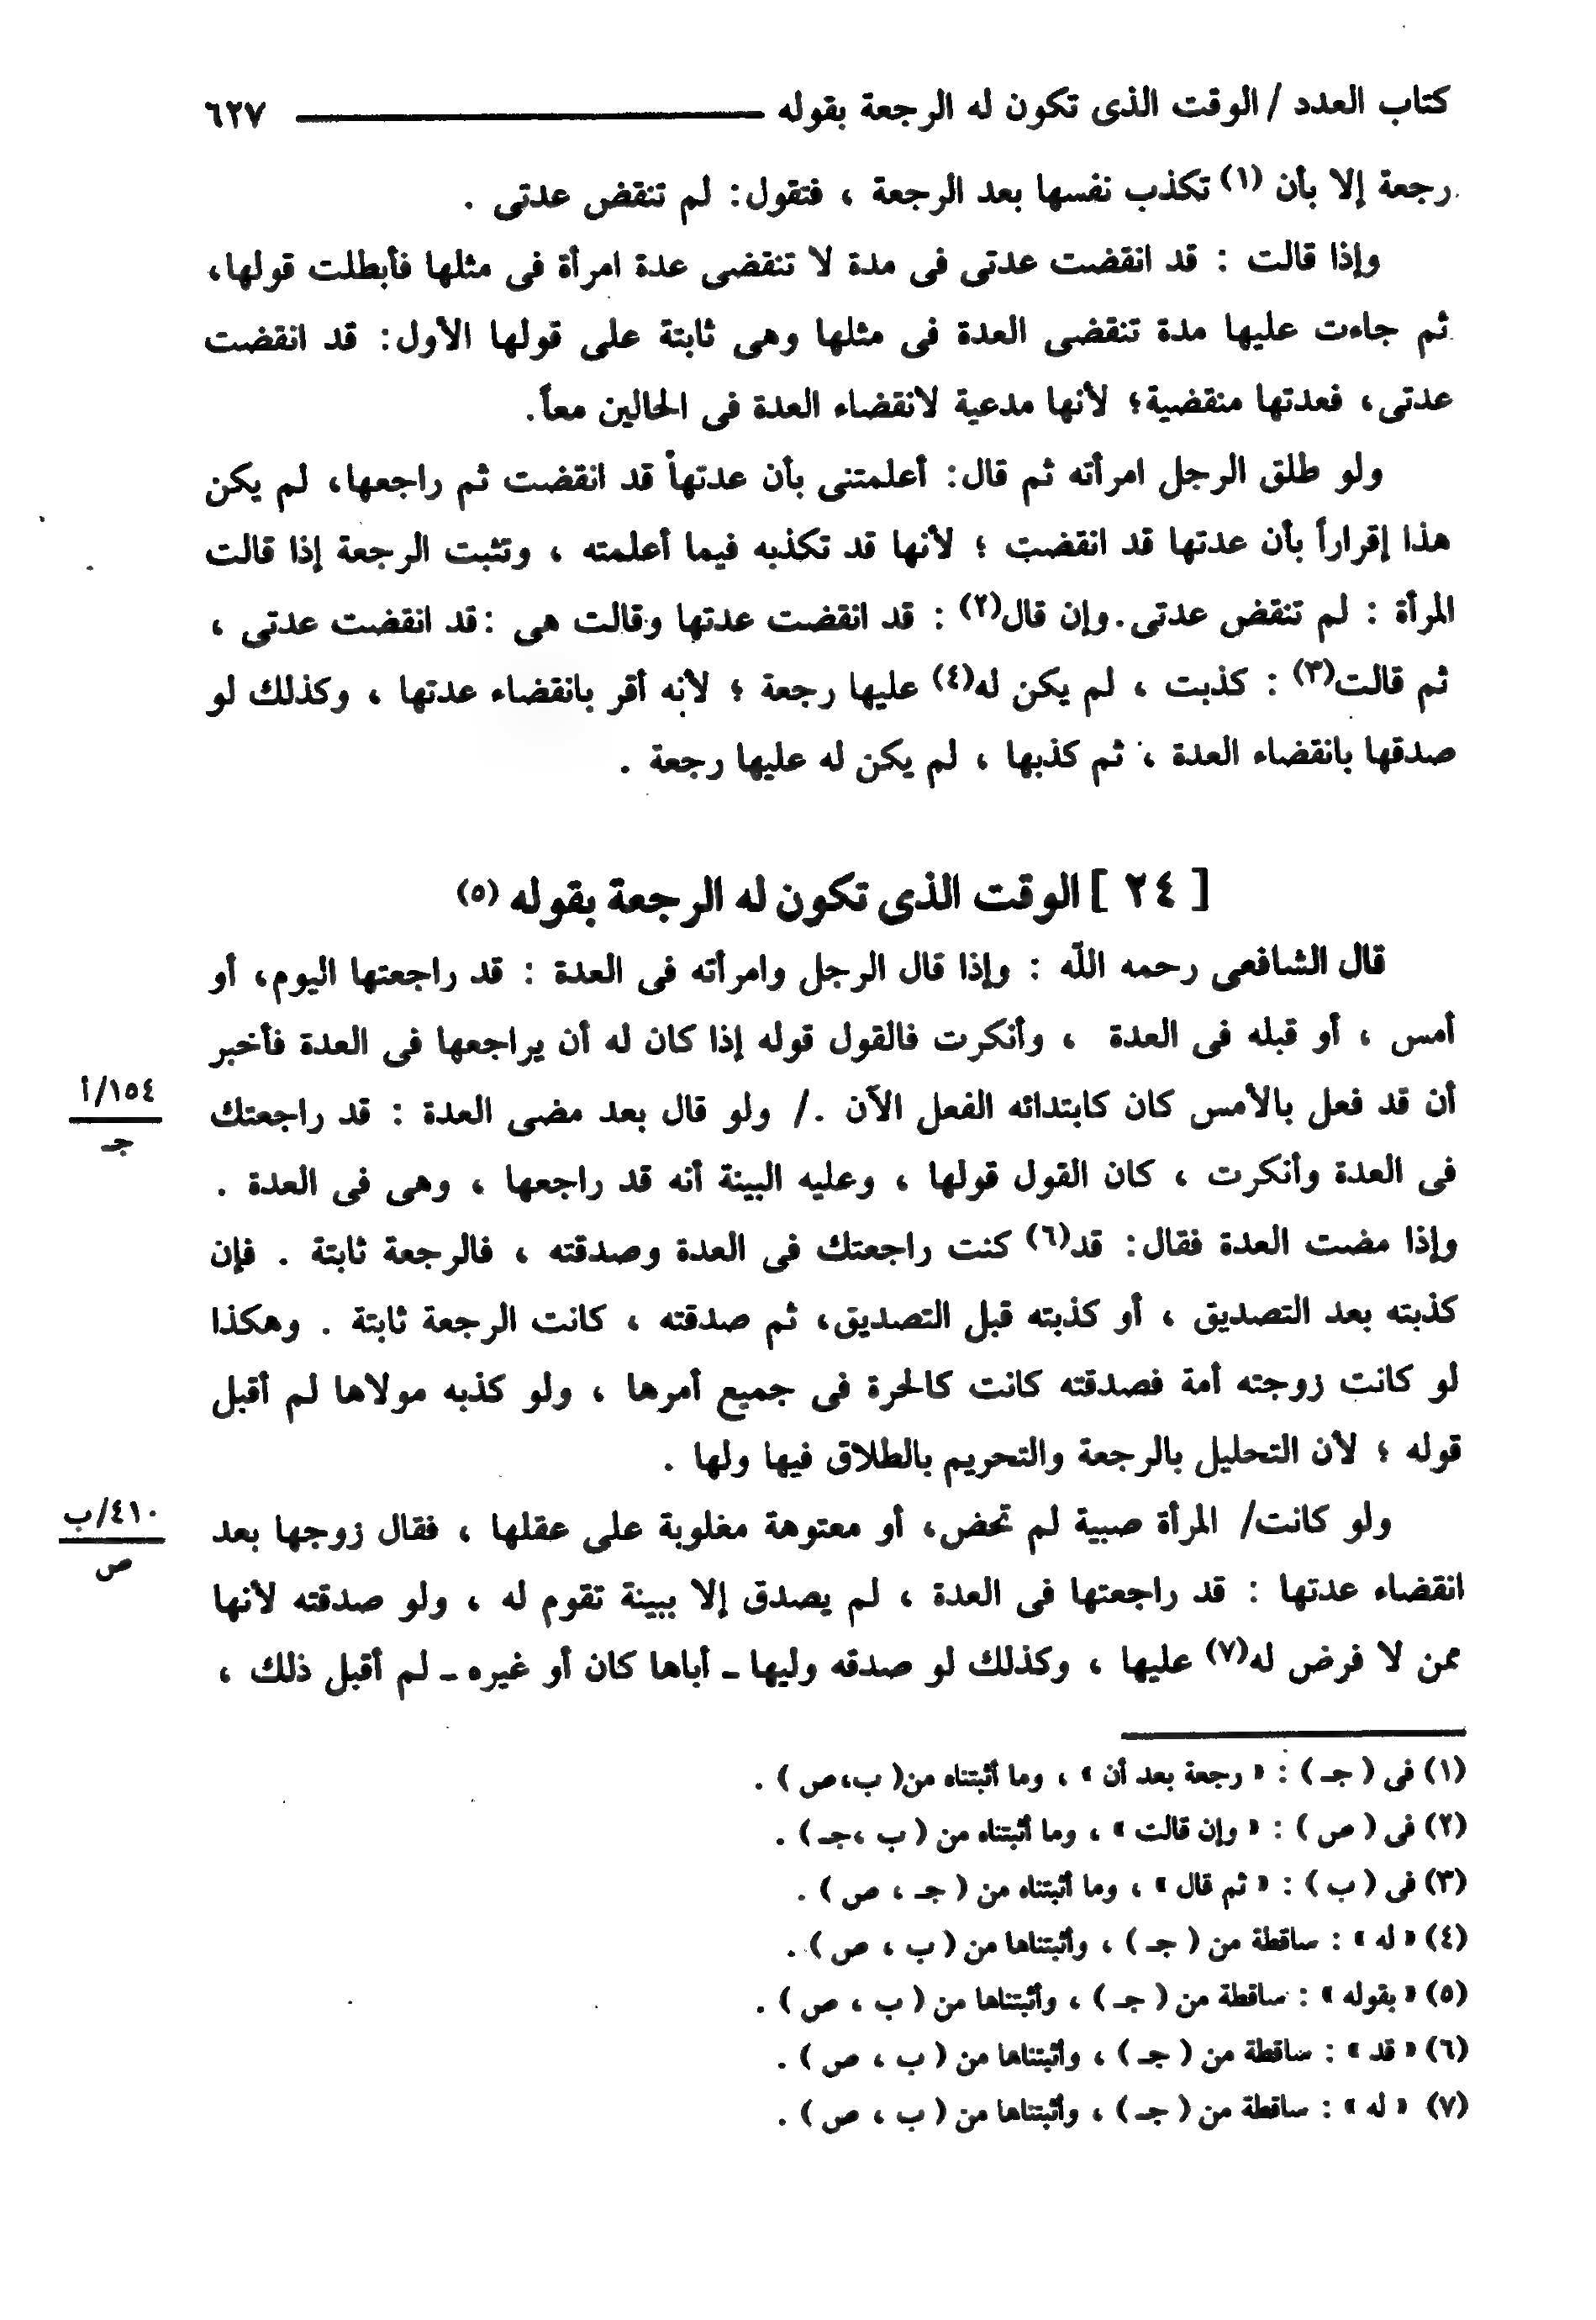 كتاب العدد / الوقت الذى تكون له الرجعة بقوله ــــــــ ٦٢٧
رجعة إلا بأن (١) تكذب نفسها بعد الرجعة ، فتقول: لم تنقض عدتى .
وإذا قالت : قد انقضت عدتى فى مدة لا تنقضى عدة امرأة فى مثلها فأبطلت قولها،
ثم جاءت عليها مدة تنقضى العدة فى مثلها وهى ثابتة على قولها الأول: قد انقضت
عدتى، فعدتها منقضية؛ لأنها مدعية لانقضاء العدة فى الحالين معاً.
ولو طلق الرجل امرأته ثم قال: أعلمتنى بأن عدتها قد انقضت ثم راجعها، لم يكن
هذا إقراراً بأن عدتها قد انقضت ؛ لأنها قد تكذبه فيما أعلمته ، وتثبت الرجعة إذا قالت
المرأة : لم تنقض عدتى. وإن قال(٢) : قد انقضت عدتها وقالت هى : قد انقضت عدتى ،
ثم قالت(٣) : كذبت ، لم يكن له(٤) عليها رجعة ؛ لأنه أقر بانقضاء عدتها ، وكذلك لو
صدقها بانقضاء العدة ، ثم كذبها ، لم يكن له عليها رجعة .
[ ٢٤ ] الوقت الذى تكون له الرجعة بقوله (٥)
قال الشافعى رحمه اللّه : وإذا قال الرجل وامرأته فى العدة : قد راجعتها اليوم، أو
أمس ، أو قبله فى العدة ، وأنكرت فالقول قوله إذا كان له أن يراجعها فى العدة فأخبر
أن قد فعل بالأمس كان كابتدائه الفعل الآن ./ ولو قال بعد مضى العدة : قد راجعتك
١٥٤/أ
جـ
فى العدة وأنكرت ، كان القول قولها ، وعليه البينة أنه قد راجعها ، وهى فى العدة .
وإذا مضت العدة فقال: قد(٦) كنت راجعتك فى العدة وصدقته ، فالرجعة ثابتة . فإن
كذبته بعد التصديق ، أو كذبته قبل التصديق، ثم صدقته ، كانت الرجعة ثابتة . وهكذا
لو كانت زوجته أمة فصدقته كانت كالحرة فى جميع أمرها ، ولو كذبه مولاها لم أقبل
قوله ؛ لأن التحليل بالرجعة والتحريم بالطلاق فيها ولها .
ولو كانت/ المرأة صبية لم تحض، أو معتوهة مغلوبة على عقلها ، فقال زوجها بعد
٤١٠/ب
ص
انقضاء عدتها : قد راجعتها فى العدة ، لم يصدق إلا ببينة تقوم له ، ولو صدقته لأنها
ممن لا فرض له(٧) عليها ، وكذلك لو صدقه وليها ـ أباها كان أو غيره ـ لم أقبل ذلك ،
(١) فى ( جـ ) : « رجعة بعد أن » ، وما أثبتناه من( ب،ص ) .
(٢) فى ( ص ) : « وإن قالت » ، وما أثبتناه من ( ب ،جـ ) .
(٣) فى ( ب ) : « ثم قال » ، وما أثبتناه من ( جـ ، ص ) .
(٤) « له » : ساقطة من ( جـ ) ، وأثبتناها من ( ب ، ص ) .
(٥) « بقوله » : ساقطة من ( جـ ) ، وأثبتناها من ( ب ، ص ) .
(٦) « قد » : ساقطة من ( جـ ) ، وأثبتناها من ( ب ، ص ) .
(٧) « له » : ساقطة من ( جـ ) ، وأثبتناها من ( ب ، ص ) .